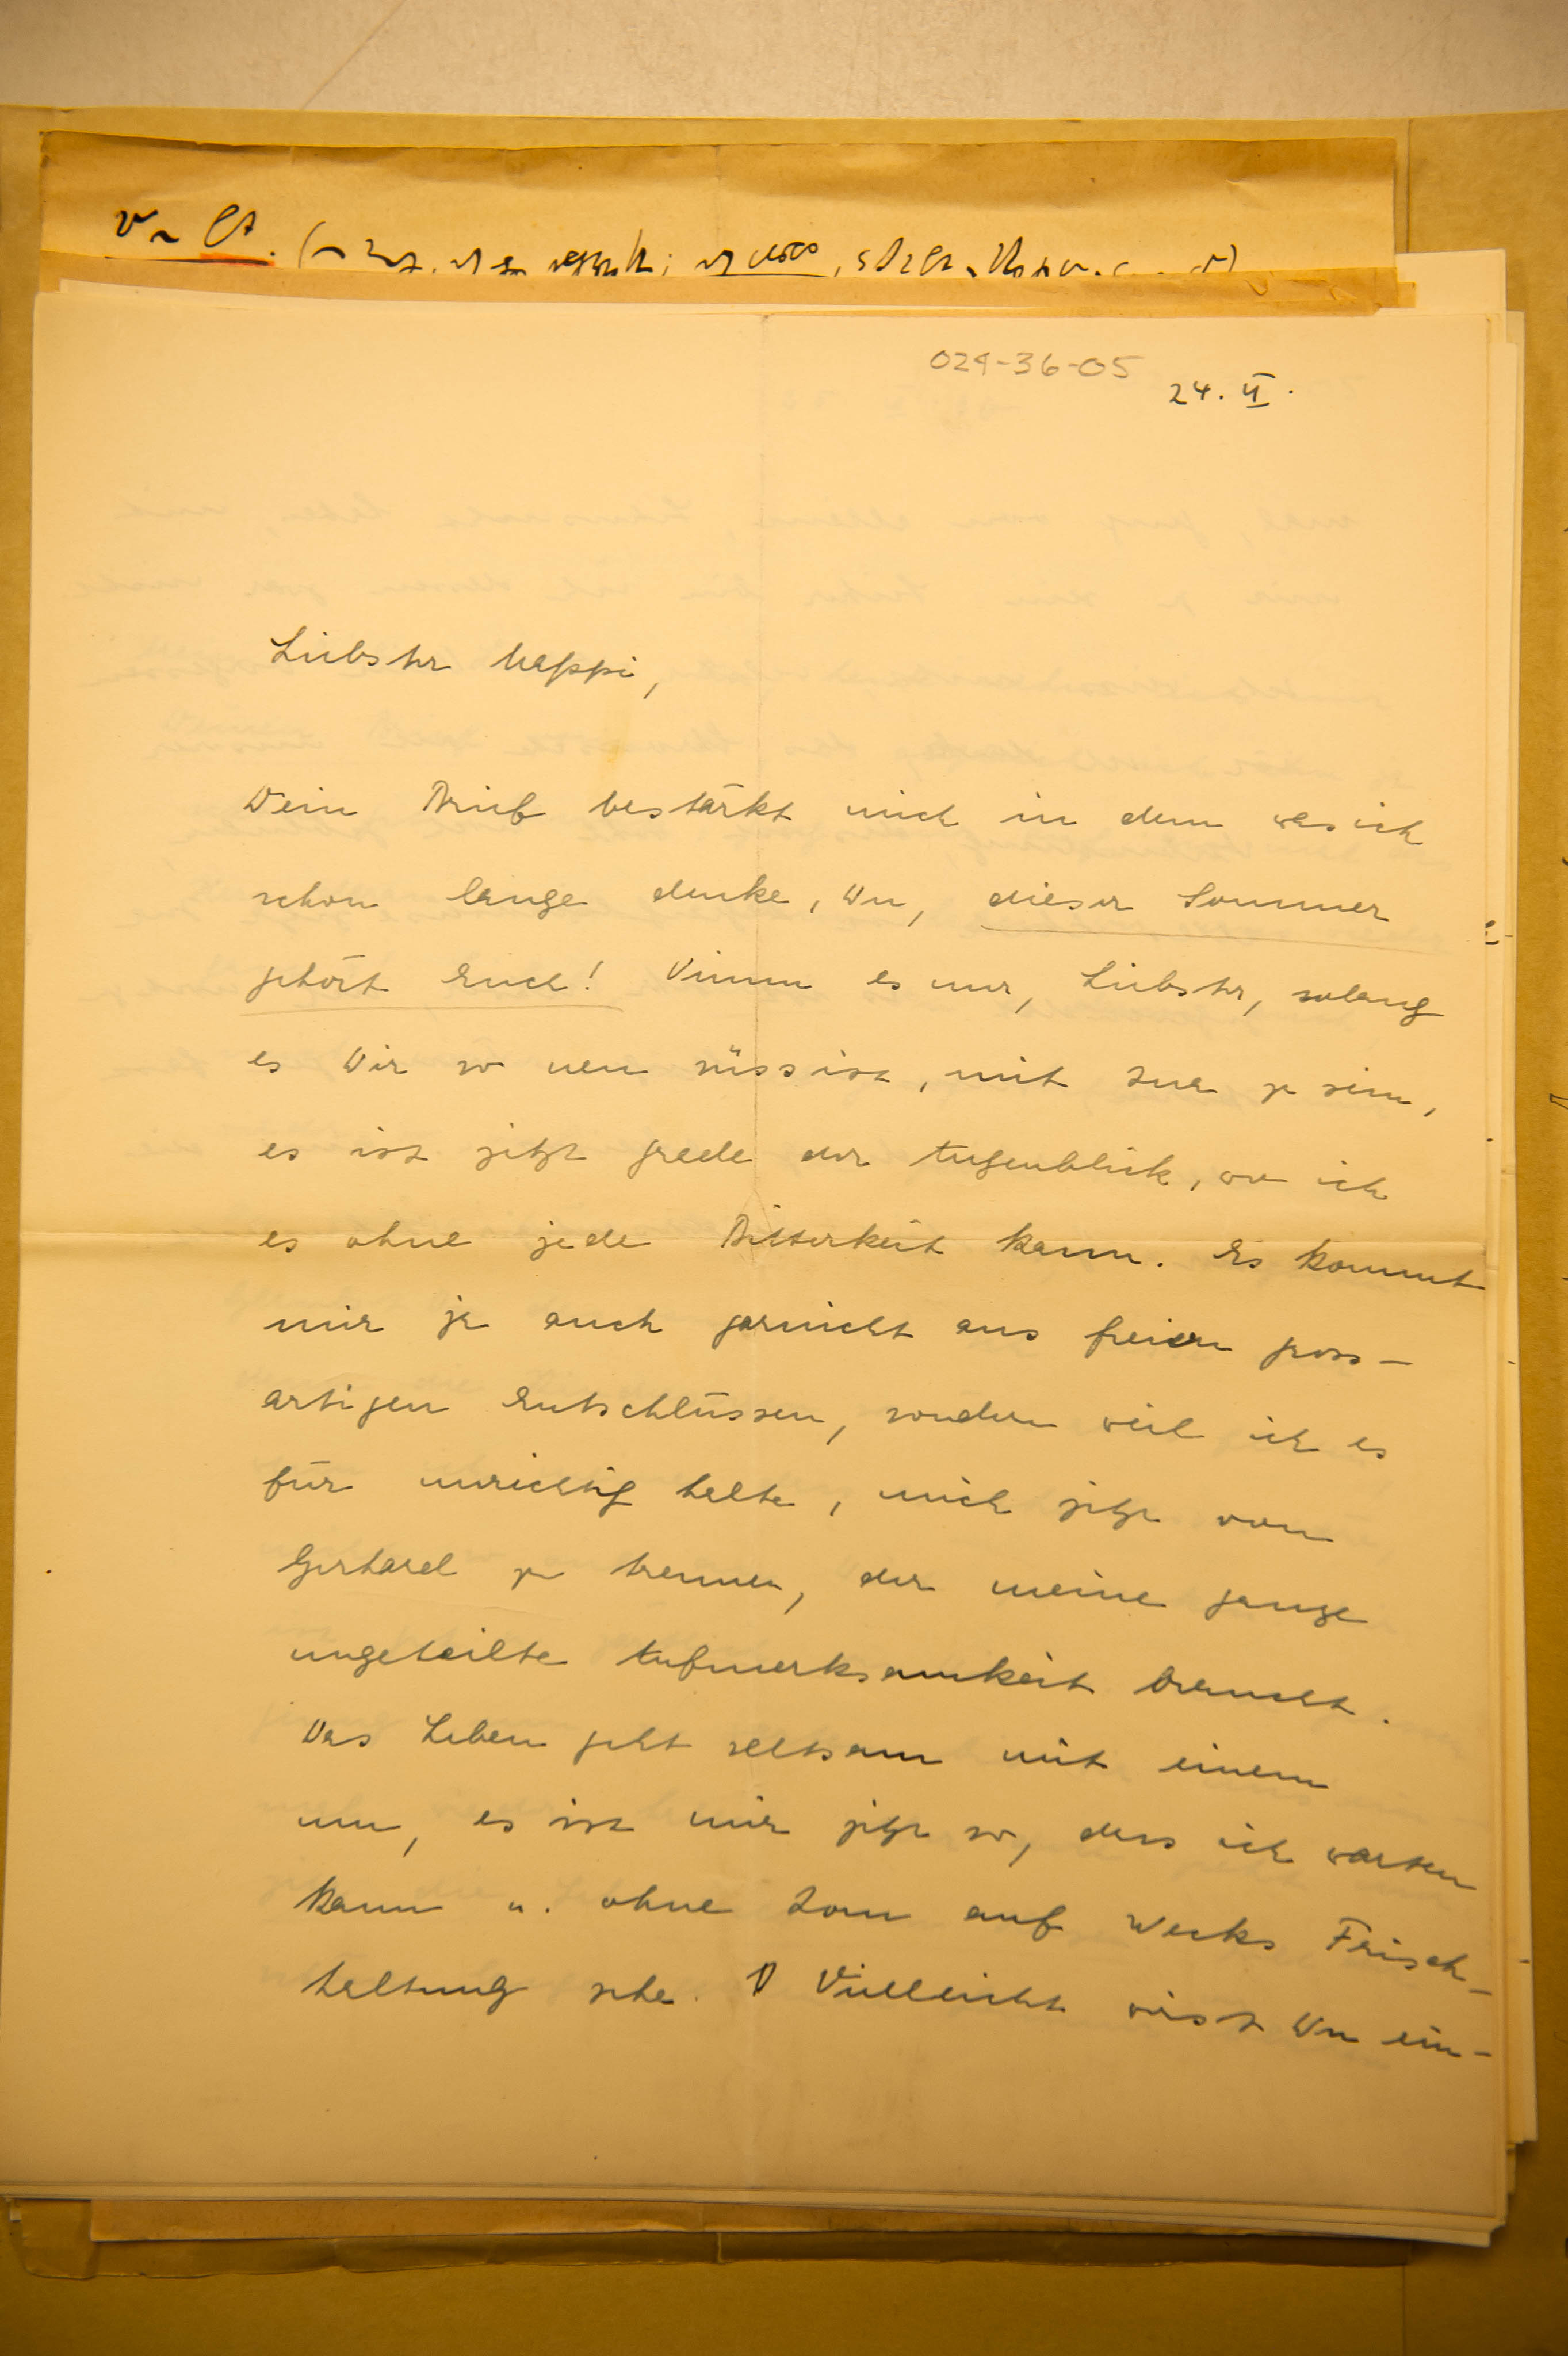 024-36-05
24. VI.
Liebster Kappi,
Dein Brief bestärkt mich in dem was ich
schon lange denke, Du, dieser Sommer
gehört Euch! Nimm es nur, Liebster, solang
es Dir so neu süss ist, mit Ina zu sein,
es ist jetzt grade der Augenblick, wo ich
es ohne jede Bitterkeit kann. Es kommt
mir ja auch garnicht aus freien gross-
artigen Entschlüssen, sondern weil ich es
für unrichtig halte, mich jetzt von
Gerhard zu trennen, der meine ganze
ungeteilte Aufmerksamkeit braucht.
Das Leben geht seltsam mit einem
um, es ist mir jetzt so, dass ich warten
kann u. ohne Zorn auf Wecks Frisch-
haltung sehe. Vielleicht wirst Du ein-